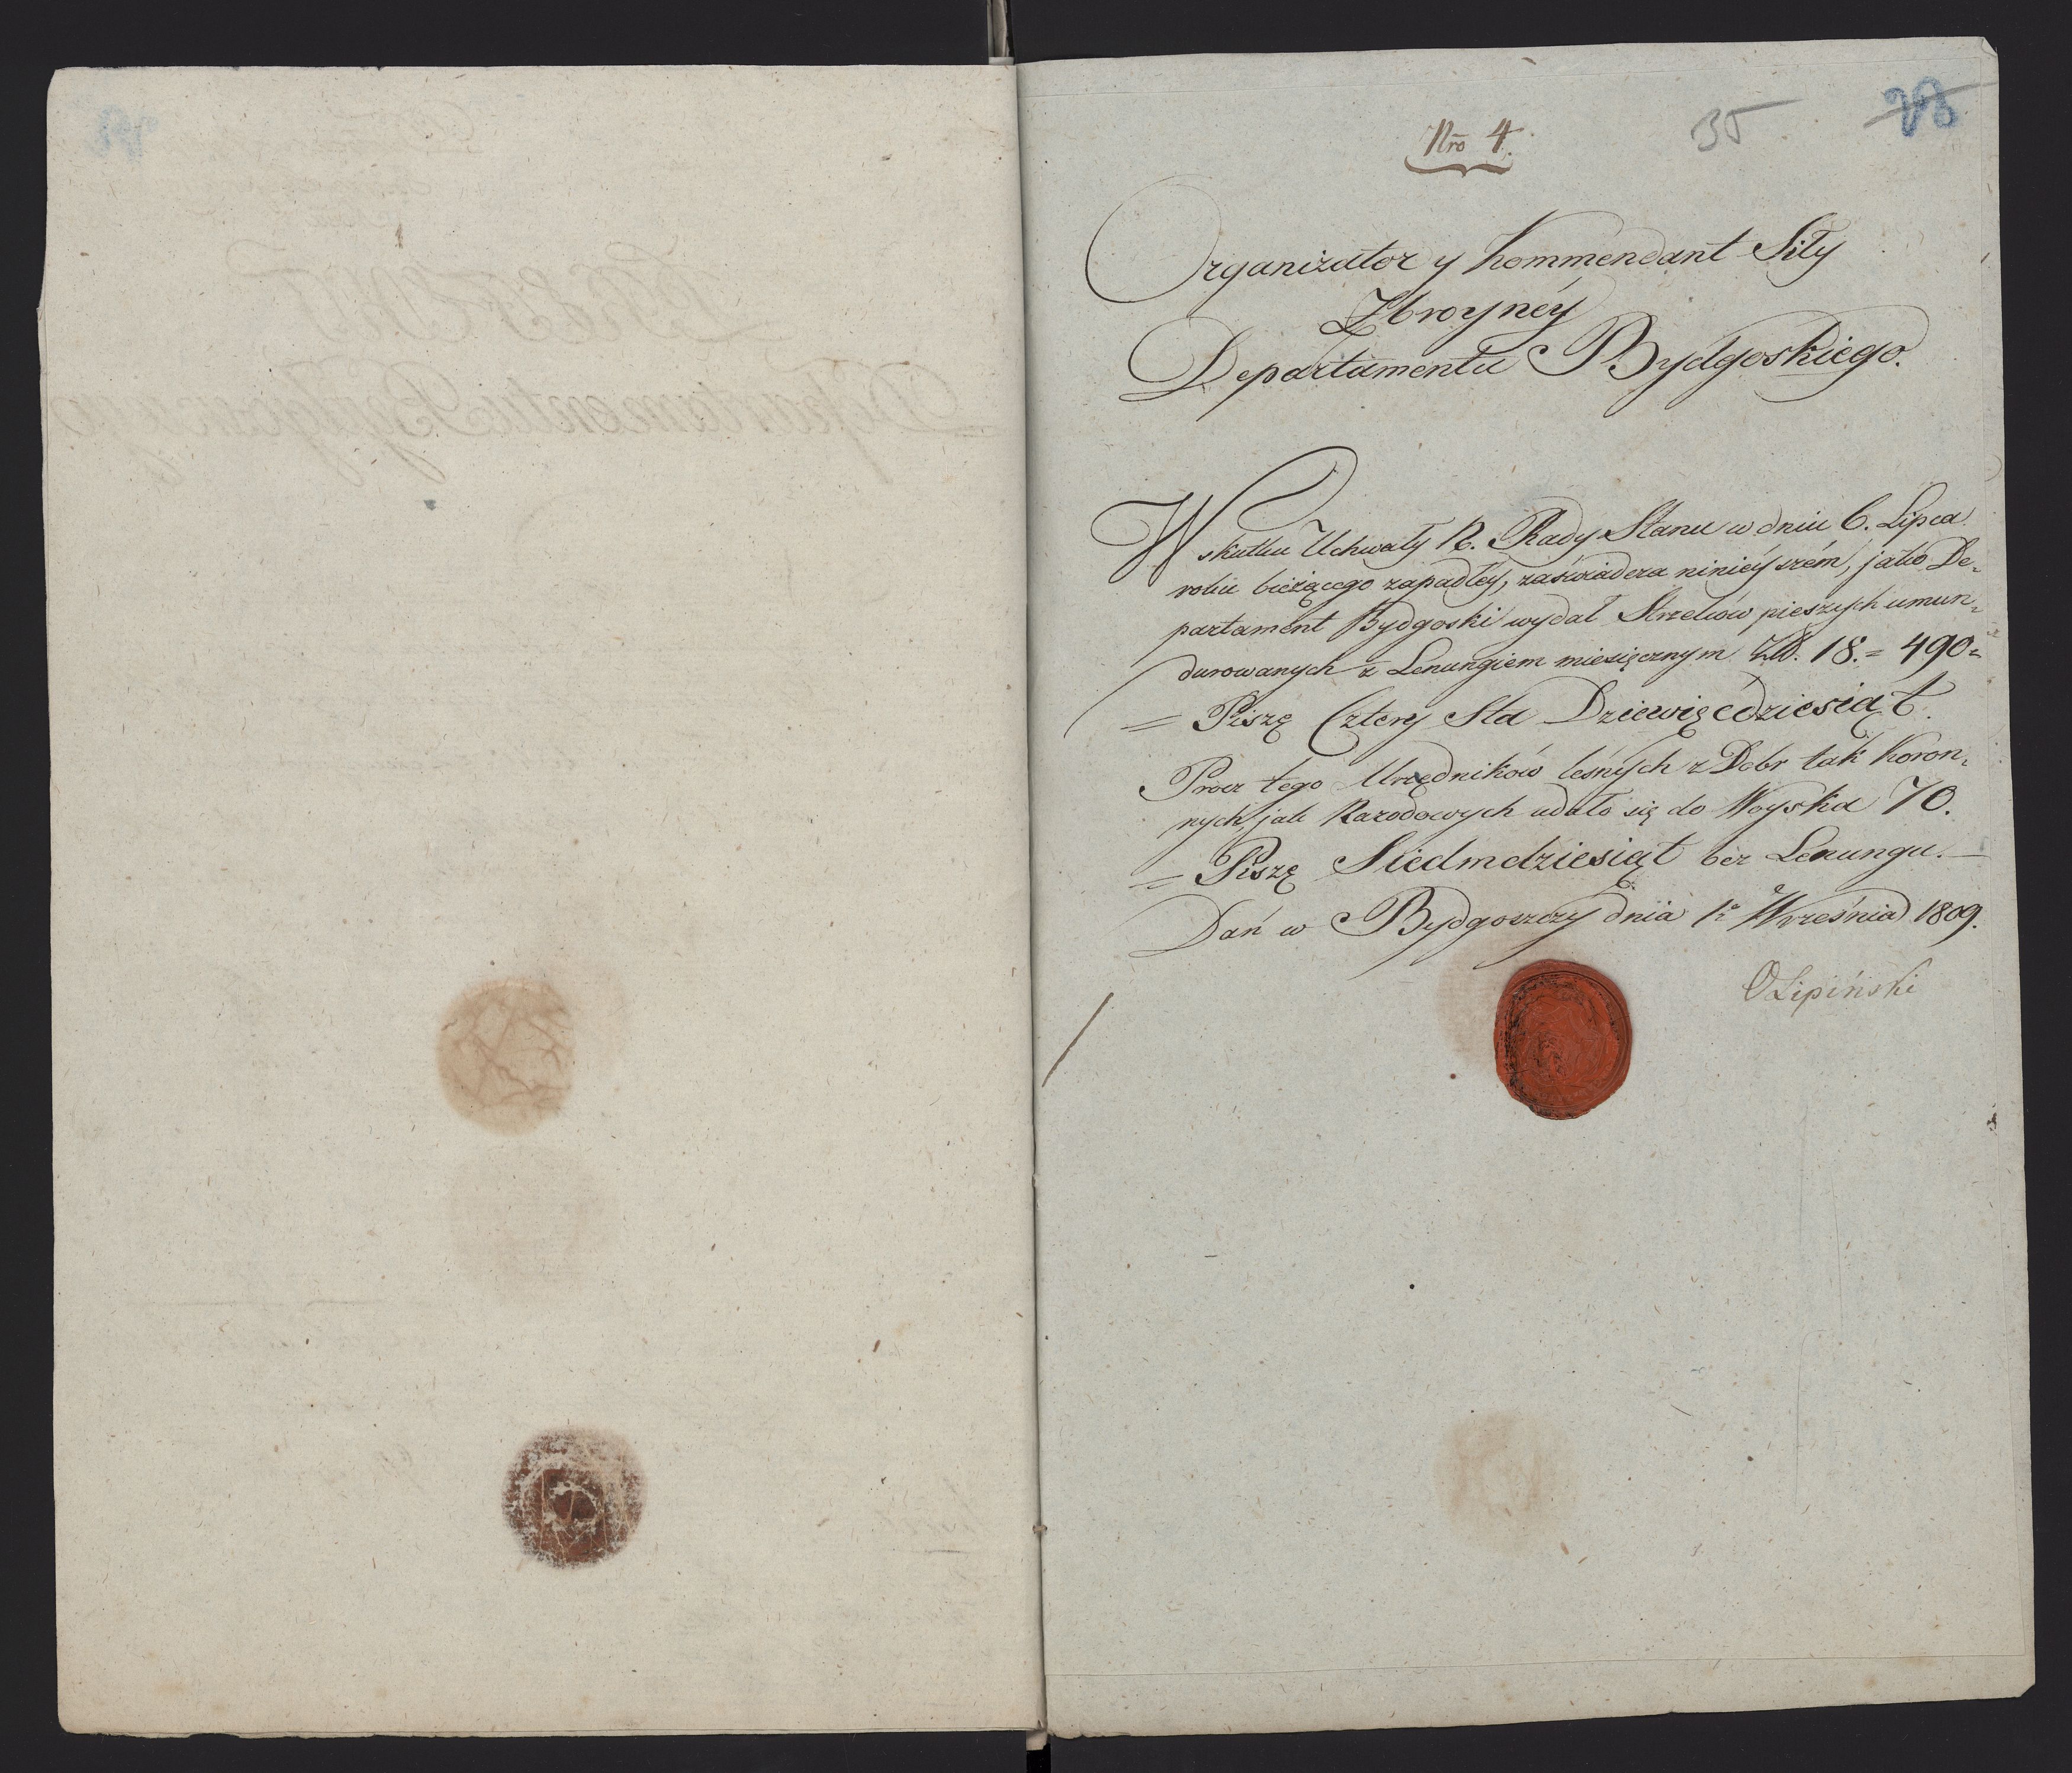 Nro 4.
35
28
Organizator y Kommendant Siły
Zbroynéy
Departamentu Bydgoskiego.
W skutku Uchwały R. Rady Stanu w dniu 6. Lipca
roku bieżącego zapadłéy, zaświadcza ninieyszém, jako De=
partament Bydgoski wydał Strzelców pieszych umun=
durowanych z Lenungiem miesięcznym Zł. 18.= 490=
= Piszę Cztery Sta Dziewięćdziesiąt.
Procz tego Urzędników leśnych z Dobr tak Koron=
nych, jak Narodowych udało się do Woyska 70.
= Piszę Siedmdziesiąt bez Lenungu.—
Dań w Bydgoszczy dnia 1o Września 1809.
OLipiński